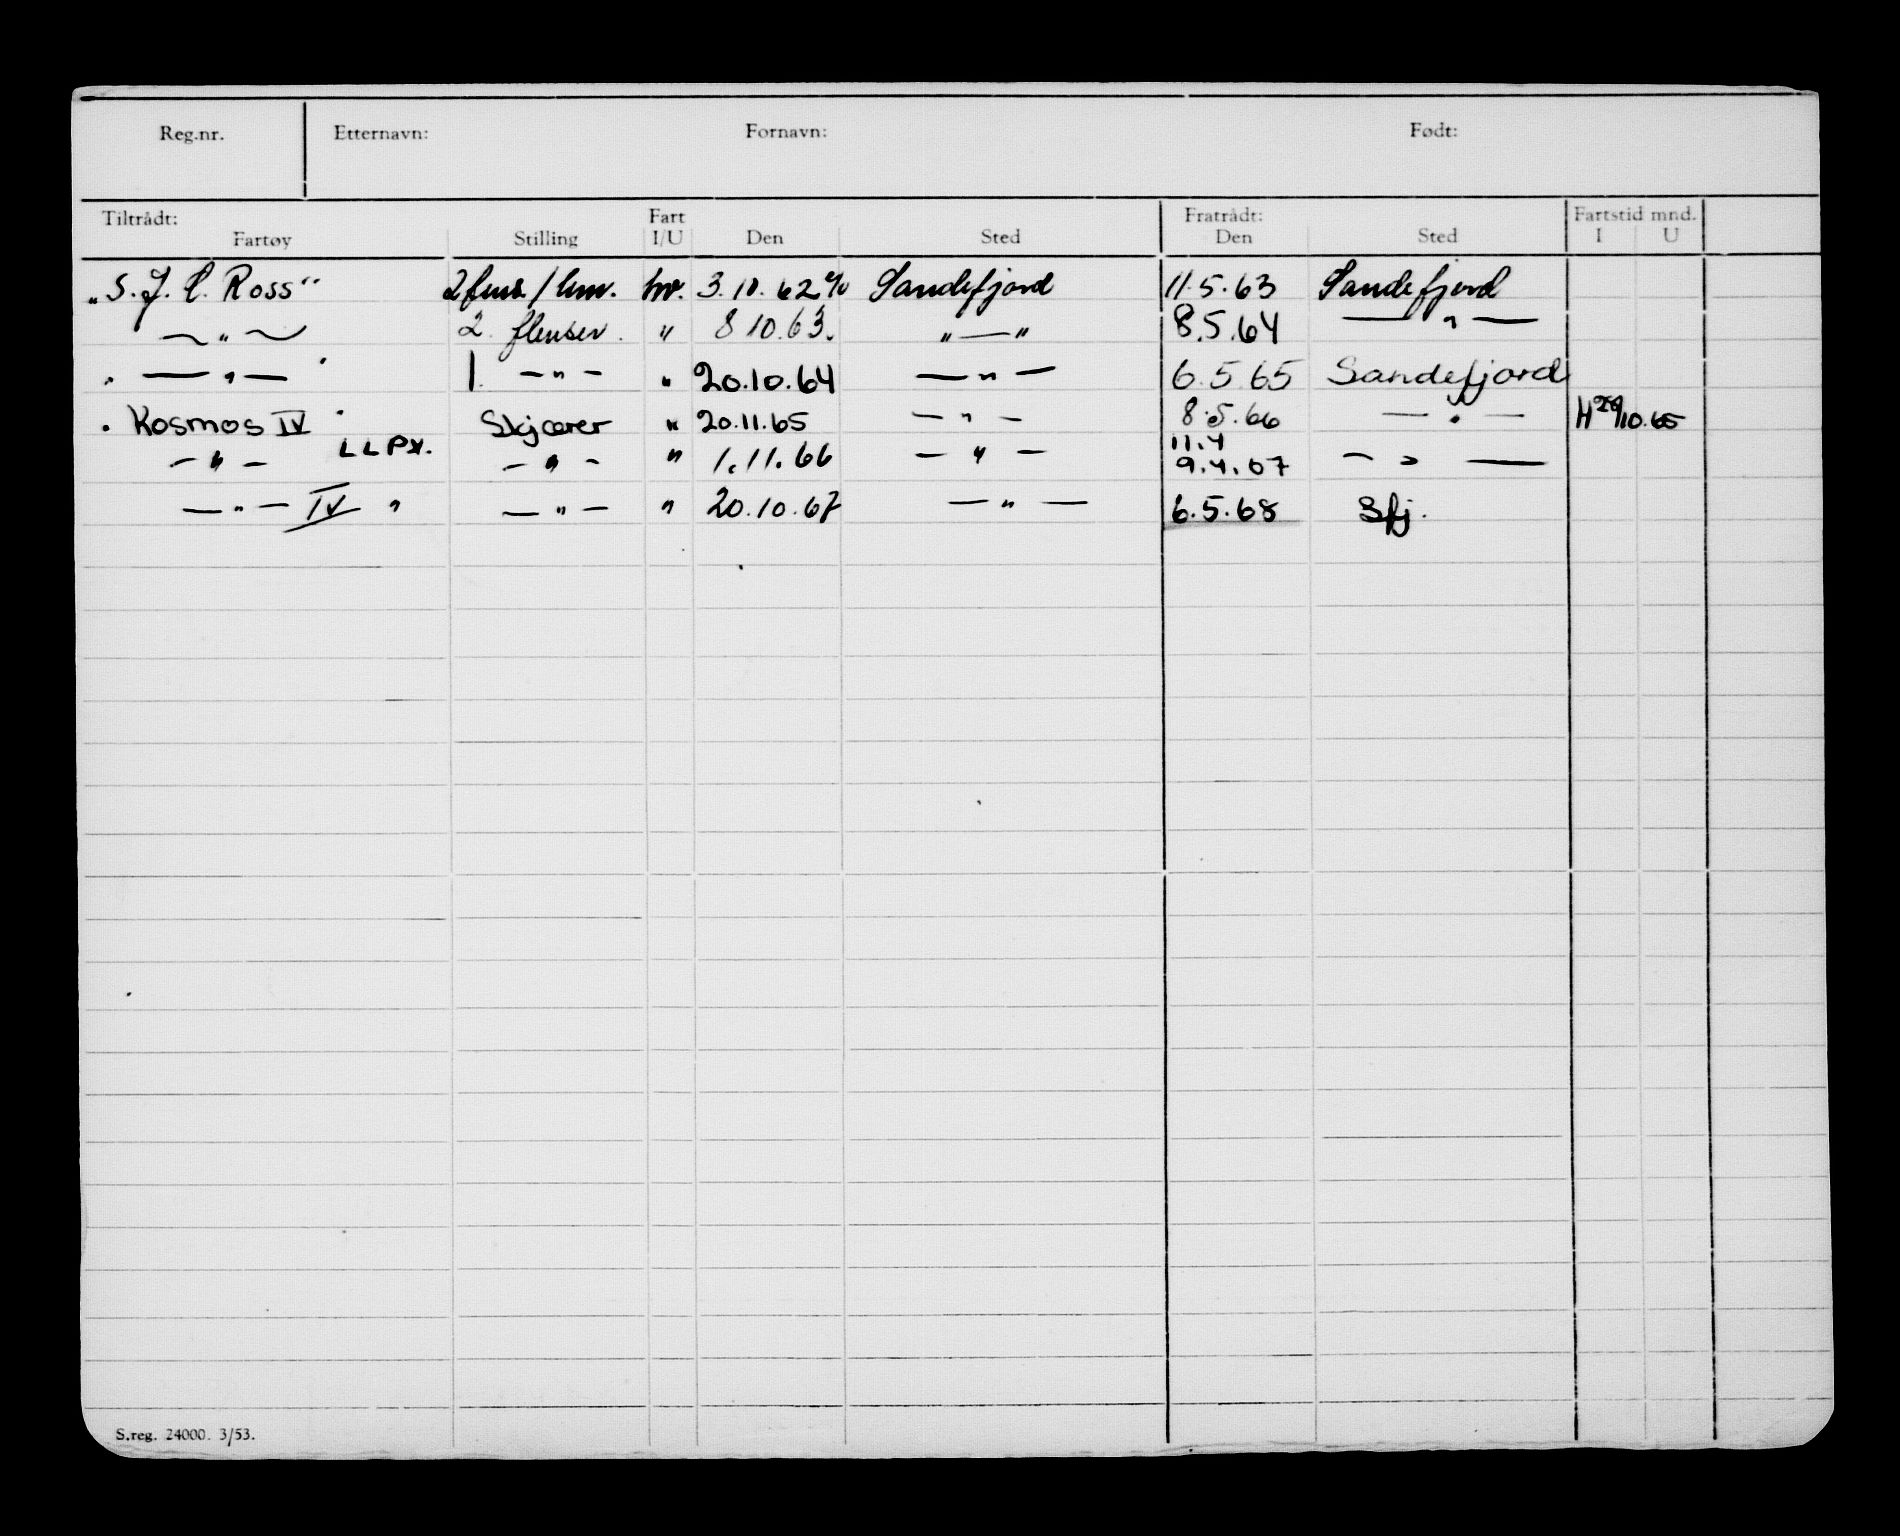 Reg.nr. Etternavn: Fornavn: Født:
Tiltrådt: Fart Fratrådt: Fartstid mnd.
Fartøy Stilling I/U Den Sted Den Sted I U
"S. J. C. Ross" hv. 3.10.62 Sandefjord 11.5.63 Sandefjord
— " — 2. flenser. " 8 10.63. " — " 8.5.64 — " —
" — " — " 1. — " — " 20.10.64 — " — 6.5.65 Sandefjord
" Kosmos IV " Skjærer " 20.11.65 — " — 8.5.66 — " — H 29/10.65
LLPX. 11.4
— " — — " — " 1.11.66 — " — 9.4.67 — " —
— " — IV " — " — " 20.10.67 — " — 6.5.68 Sfj.
S.reg. 24000. 3/53.